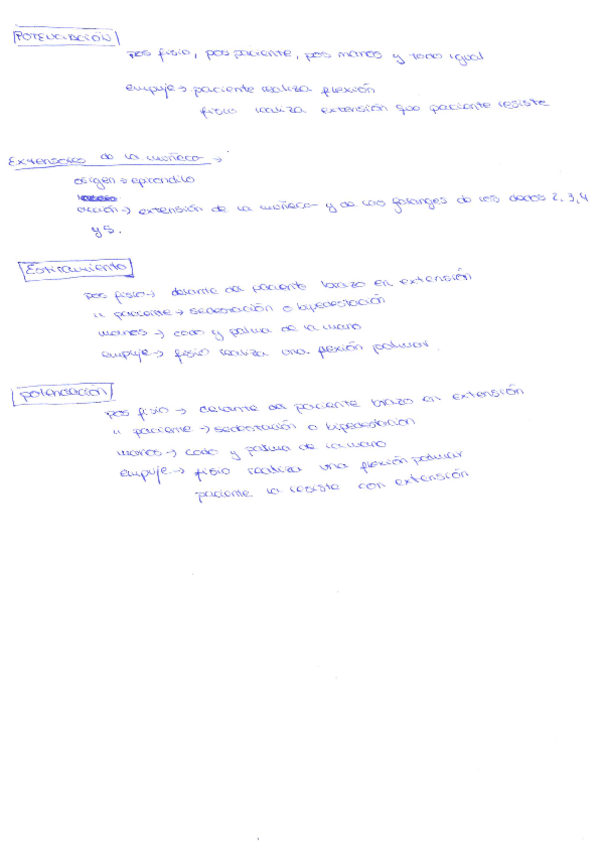 POTENCIACIÓN
pos fisio, pos paciente, pos manos y todo igual
empuje → paciente realiza flexión
fisio realiza extensión que paciente resiste
Extensores de la muñeca →
origen → epicondilo
acción → extensión de la muñeca y de las falanges de los dedos 2, 3, 4
y 5.
Estiramiento
pos fisio → delante del paciente brazo en extensión
" paciente → sedestación o bipedestación
manos → codo y palma de la mano
empuje → fisio realiza una flexión palmar.
potenciación
pos fisio → delante del paciente brazo en extensión
" paciente → sedestación o bipedestación
manos → codo y palma de la mano
empuje → fisio realiza una flexión palmar
paciente la resiste con extensión